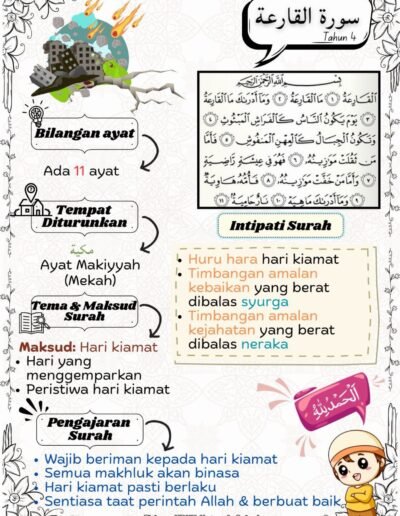 سورة القارعة
Tahun 4
بِسْمِ اللَّهِ الرَّحْمَٰنِ الرَّحِيمِ
الْقَارِعَةُ ﴿١﴾ مَا الْقَارِعَةُ ﴿٢﴾ وَمَا أَدْرَىٰكَ مَا الْقَارِعَةُ
﴿٣﴾ يَوْمَ يَكُونُ النَّاسُ كَالْفَرَاشِ الْمَبْثُوثِ ﴿٤﴾
وَتَكُونُ الْجِبَالُ كَالْعِهْنِ الْمَنْفُوشِ ﴿٥﴾ فَأَمَّا
مَنْ ثَقُلَتْ مَوَازِينُهُ ﴿٦﴾ فَهُوَ فِي عِيشَةٍ رَاضِيَةٍ
﴿٧﴾ وَأَمَّا مَنْ خَفَّتْ مَوَازِينُهُ ﴿٨﴾ فَأُمُّهُ هَاوِيَةٌ
﴿٩﴾ وَمَا أَدْرَىٰكَ مَا هِيَهْ ﴿١٠﴾ نَارٌ حَامِيَةٌ ﴿١١﴾
Bilangan ayat
Ada 11 ayat
Tempat
Diturunkan
مكية
Ayat Makiyyah
(Mekah)
Tema & Maksud
Surah
Maksud: Hari kiamat
• Hari yang
menggemparkan
• Peristiwa hari kiamat
Intipati Surah
• Huru hara hari kiamat
• Timbangan amalan
kebaikan yang berat
dibalas syurga
• Timbangan amalan
kejahatan yang berat
dibalas neraka
الْحَمْدُ لِلَّهِ
Pengajaran
Surah
• Wajib beriman kepada hari kiamat
• Semua makhluk akan binasa
• Hari kiamat pasti berlaku
• Sentiasa taat perintah Allah & berbuat baik